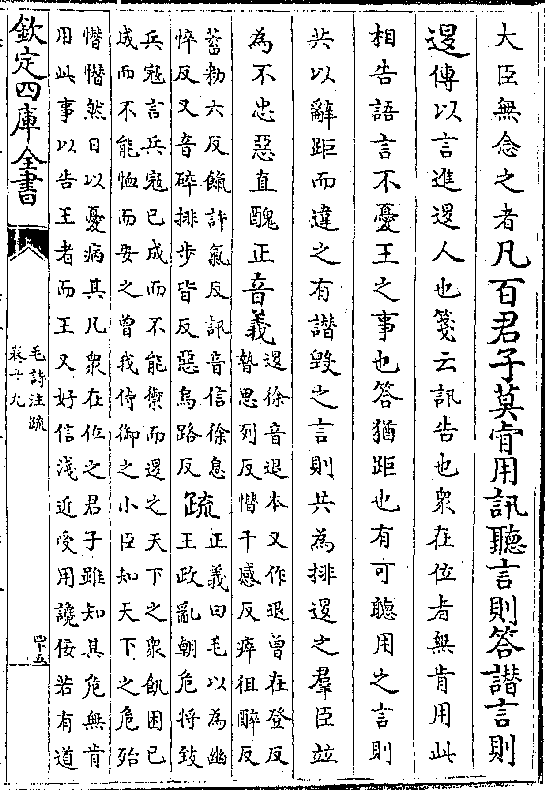 大臣無念之者凡百君子莫肯用訊聽言則答譖言則
退傳以言進退人也箋云訊告也衆在位者無肯用此
相告語言不憂王之事也答猶距也有可聽用之言則
共以辭距而違之有譖毀之言則共為排退之羣臣並
為不忠惡直醜正音義退徐音退本又作退曾在登反
暬思列反憯千感反瘁徂醉反
蓄勑六反餼許氣反訊音信徐息
悴反又音碎排步皆反惡烏路反疏正義曰毛以為幽
王政亂朝危將致
兵寇言兵寇已成而不能禦而退之天下之衆飢困已
成而不能恤而安之曾我侍御之小臣知天下之危殆
憯憯然日以憂病其凡衆在位之君子雖知其危無肯
用此事以告王者而王又好信淺近受用讒佞若有道
欽定四庫全書
毛詩注疏
卷十九
四十五